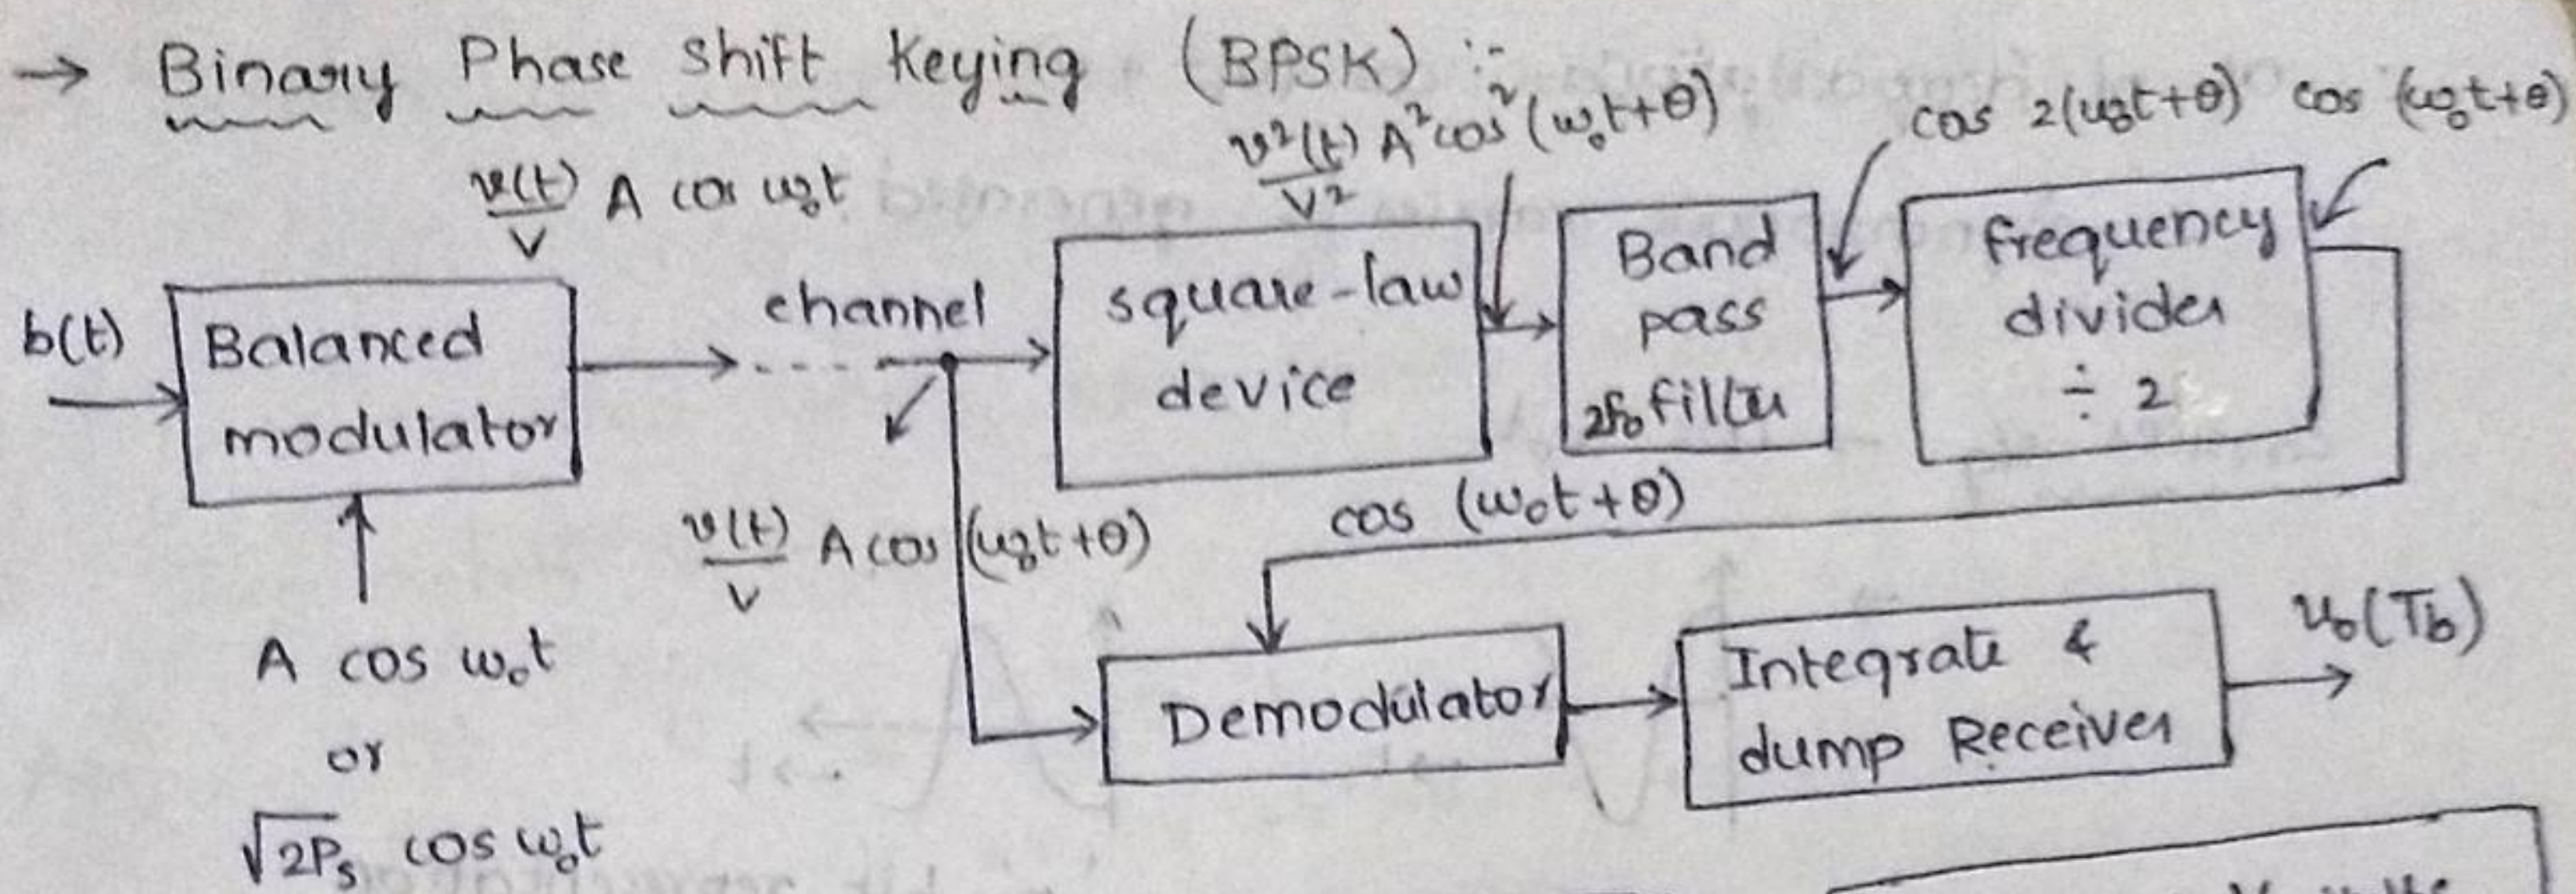 → Binary Phase shift Keying (BPSK) :-
v(t)/V A cos ω₀t
v²(t)/V² A²cos²(ω₀t+θ)
cos 2(ω₀t+θ)
cos (ω₀t+θ)
b(t)
Balanced
modulator
channel
square-law
device
Band
pass
2f₀ filter
frequency
divider
÷ 2
v(t)/V A cos (ω₀t+θ)
cos (ω₀t+θ)
A cos ω₀t
or
√2Pₛ cos ω₀t
Demodulator
Integrate &
dump Receiver
v₀(Tb)